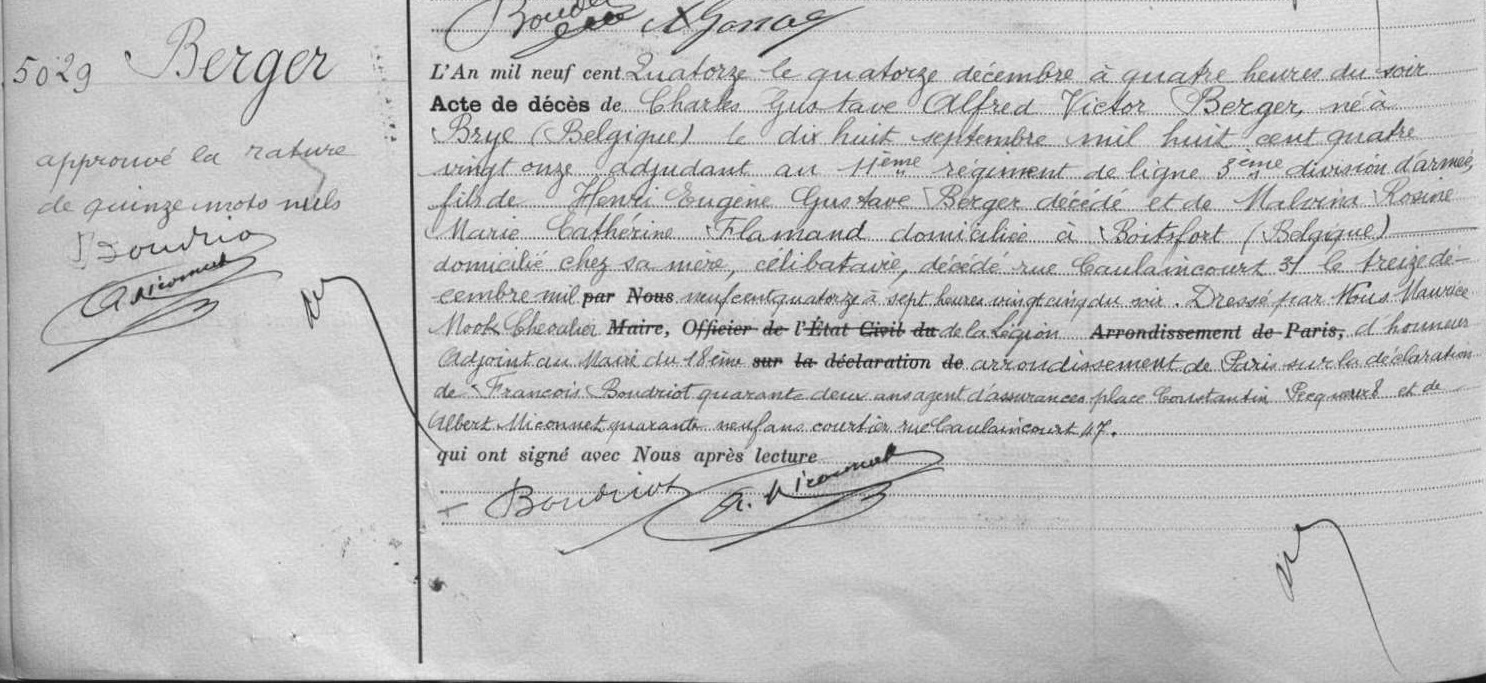 5029 Berger
approuvé la rature
de quinze mots nuls
Boudriot
A. Miconnet
L'An mil neuf cent Quatorze le quatorze décembre à quatre heures du soir
Acte de décès de Charles Gustave Alfred Victor Berger, né à
Brye (Belgique) le dix huit septembre mil huit cent quatre
vingt onze adjudant au 11ème régiment de ligne 3ème division d'armée,
fils de Henri Eugène Gustave Berger décédé et de Malvina Rosine
Marie Cathérine Flamand domiciliée à Boitsfort (Belgique)
domicilié chez sa mère, célibataire, décédé rue Caulaincourt 31 le treize dé-
cembre mil par Nous neuf cent quatorze à sept heures vingt cinq du soir. Dressé par Nous Maurice
Mook Chevalier Maire, Officier de l'État Civil du de la Légion Arrondissement de Paris, d'honneur
Adjoint au Maire du 18ème sur la déclaration de arrondissement de Paris sur la déclaration
de François Boudriot quarante deux ans agent d'assurances place Constantin Pecqueur 8 et de
Albert Miconnet quarante neuf ans courtier rue Caulaincourt 47.
qui ont signé avec Nous après lecture
Boudriot A. Miconnet